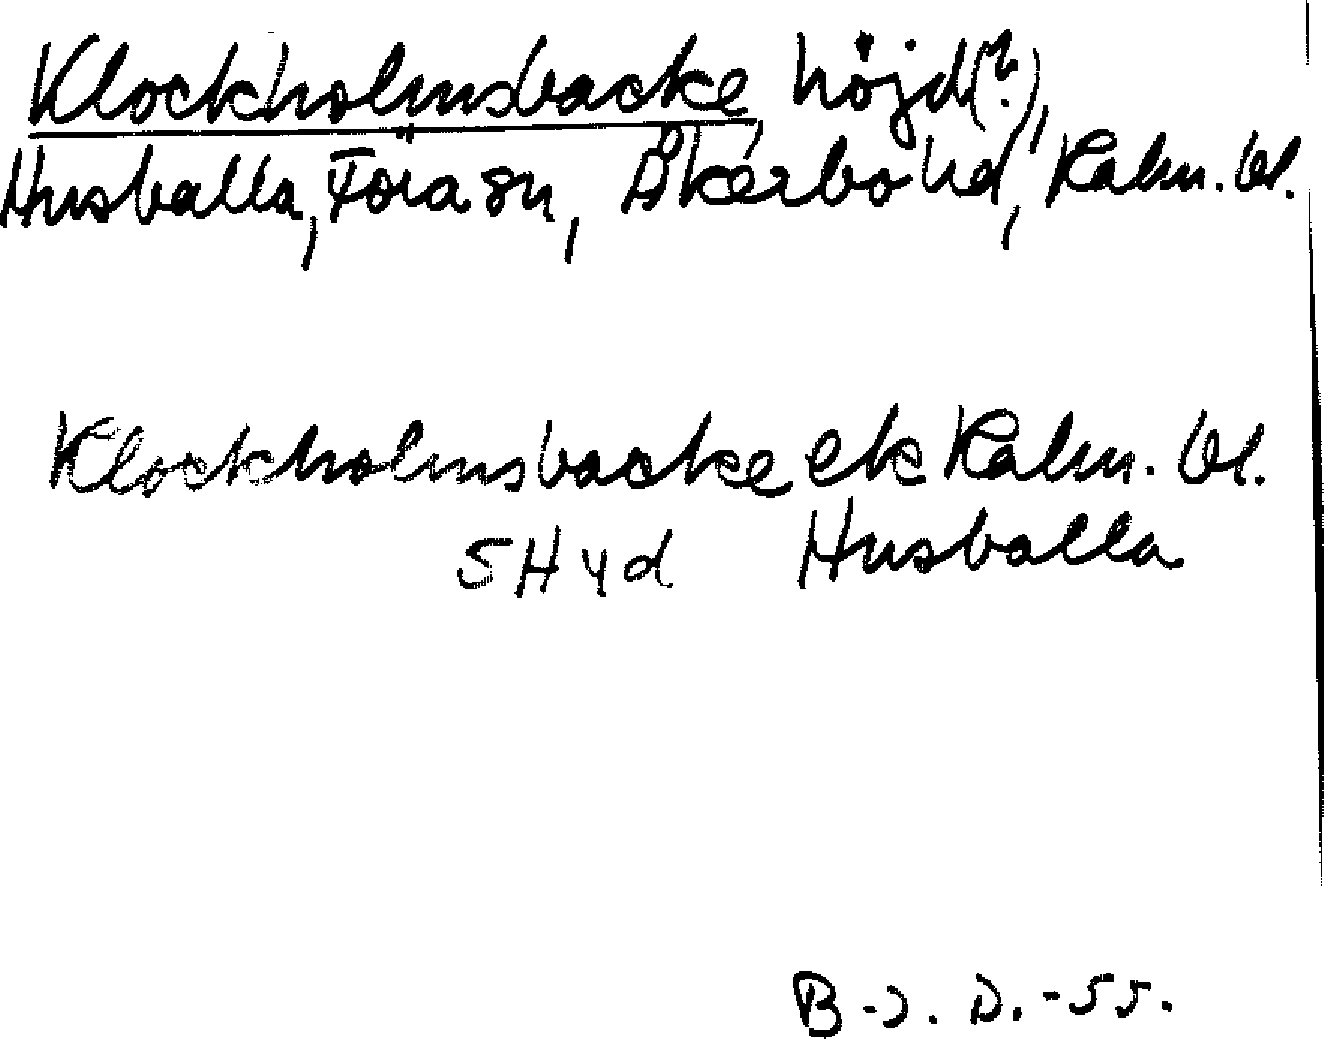 Klockholmsbacke, höjd(?),
Husvalla, Föra sn, Åkerbo hd, Kalm. bl.
Klockholmsbacke ek Kalm. bl.
5Hyd Husvalla
B-J. D. -55.